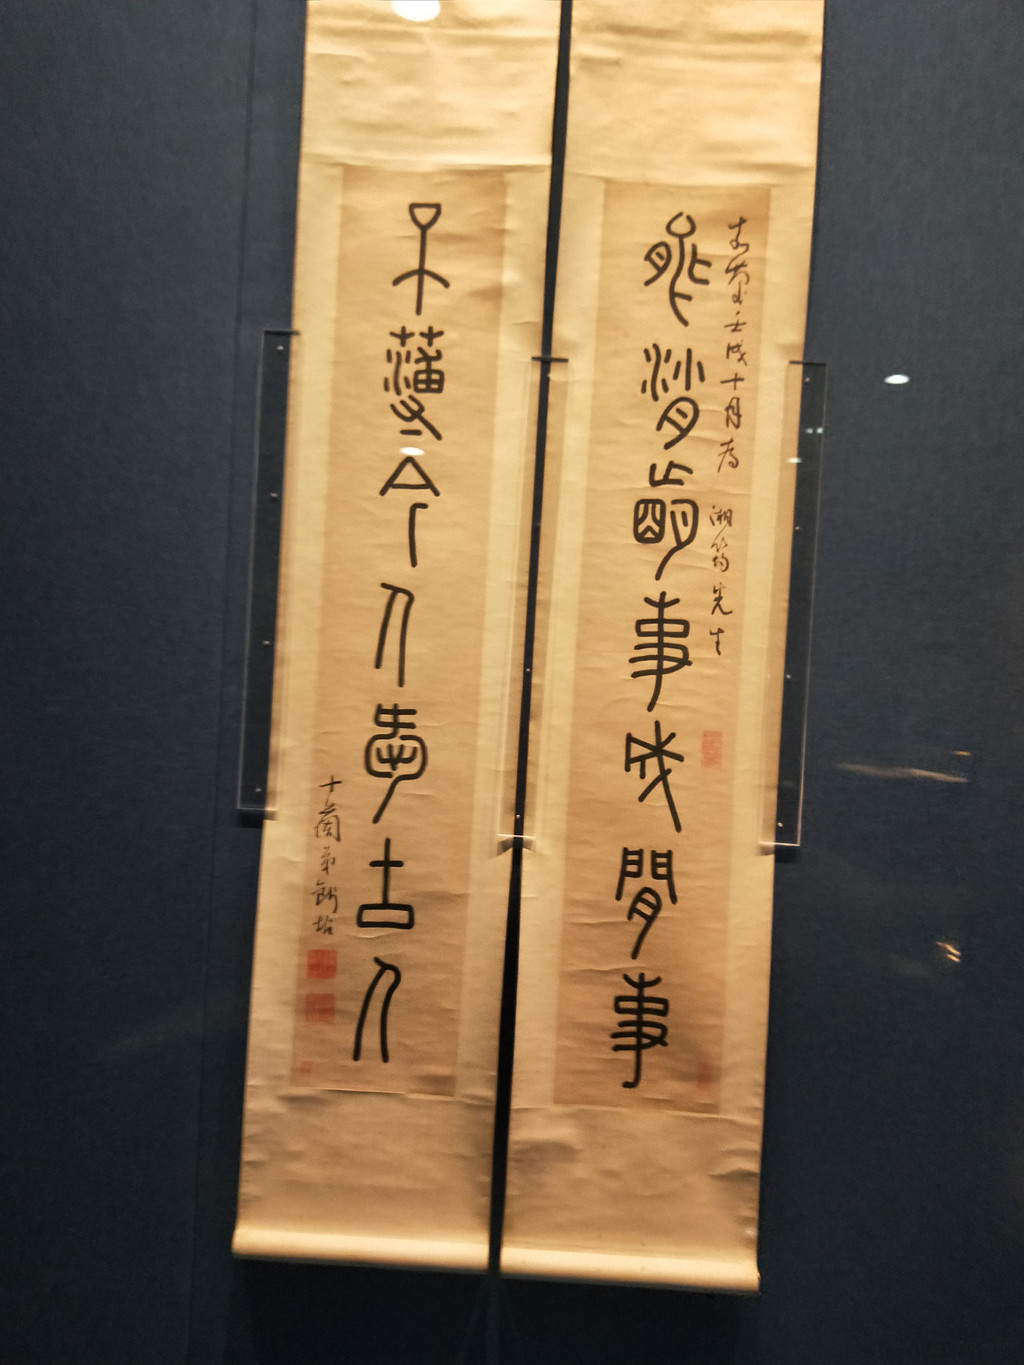 嘉慶壬戌十月為 湘筠先生
能消事成閒事
不薄今人愛古人
十蘭弟錢坫